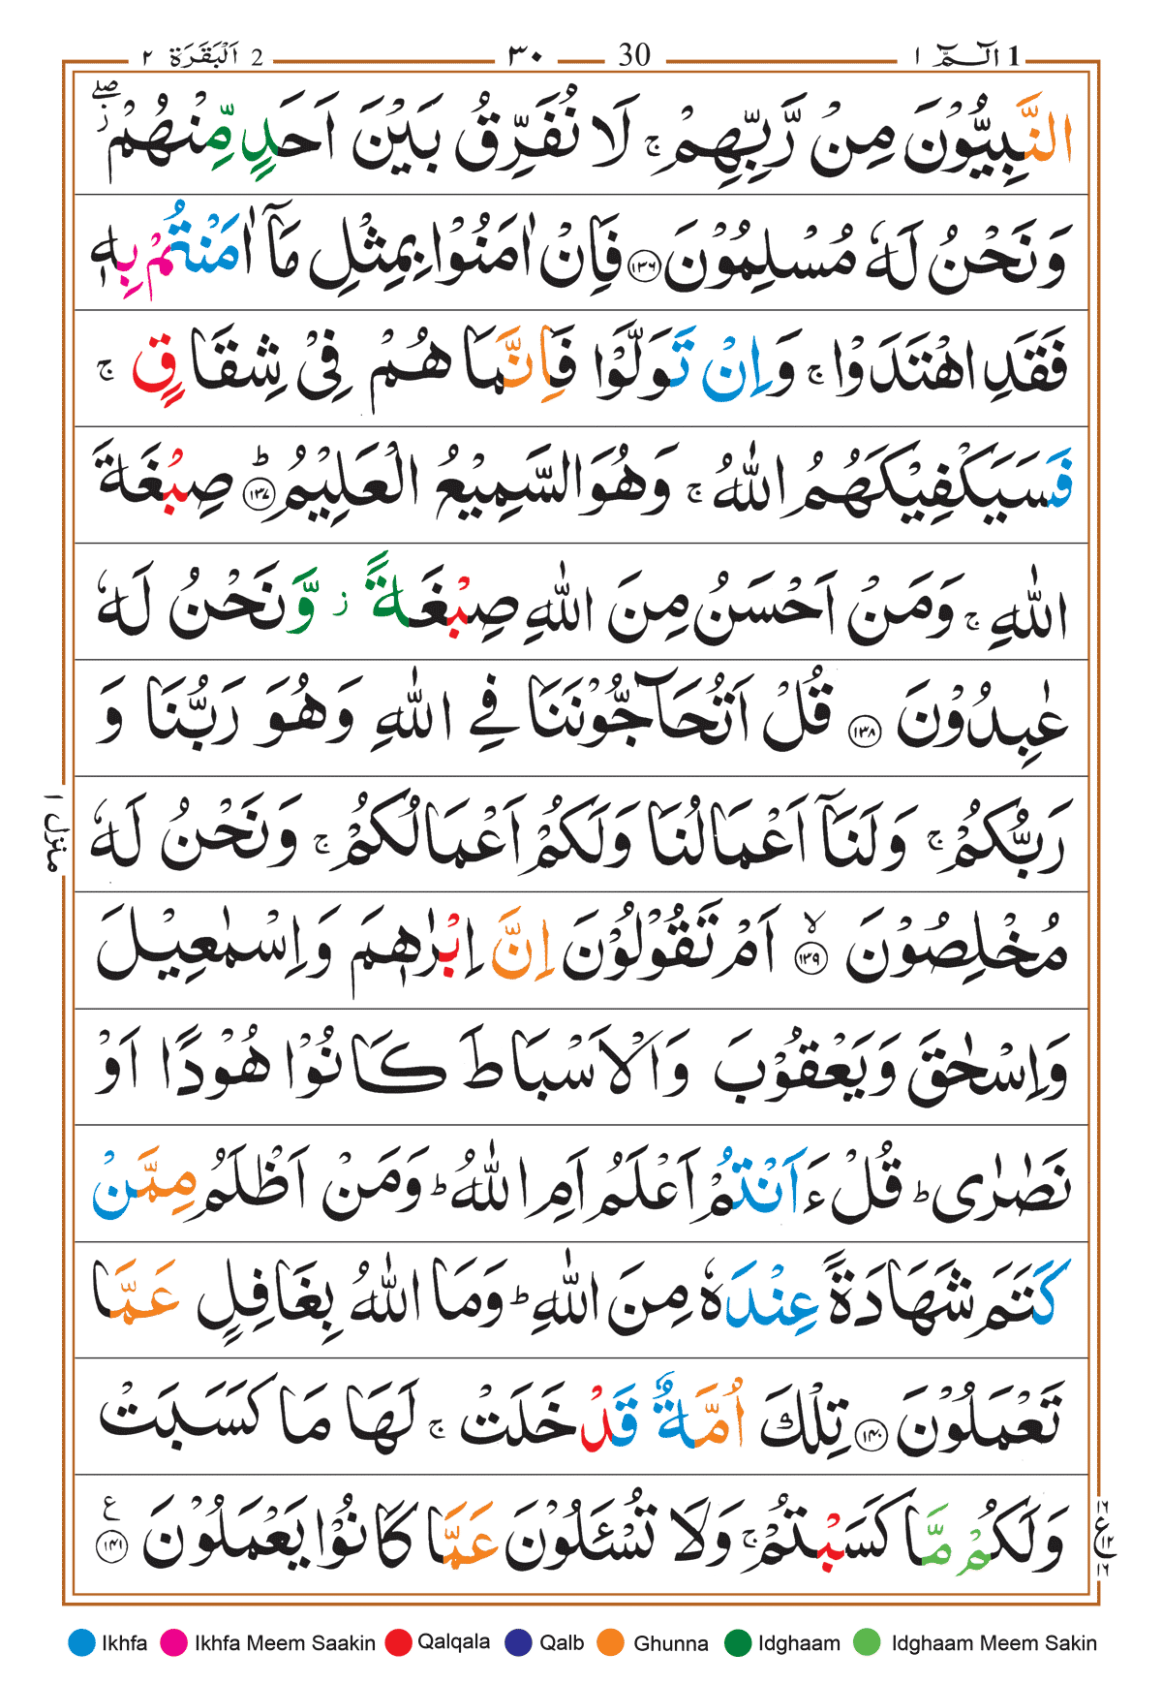 1 الٓـمّٓ ١ 30 ٣٠ 2 اَلْبَقَرَة ٢
النَّبِيُّوْنَ مِنْ رَّبِّهِمْ ۚ لَا نُفَرِّقُ بَيْنَ اَحَدٍ مِّنْهُمْ ۖ ز
وَنَحْنُ لَهٗ مُسْلِمُوْنَ ﴿١٣٦﴾ فَاِنْ اٰمَنُوْا بِمِثْلِ مَآ اٰمَنْتُمْ بِهٖ
فَقَدِ اهْتَدَوْا ۚ وَاِنْ تَوَلَّوْا فَاِنَّمَا هُمْ فِيْ شِقَاقٍ ۚ
فَسَيَكْفِيْكَهُمُ اللّٰهُ ۚ وَهُوَ السَّمِيْعُ الْعَلِيْمُ ؕ ﴿١٣٧﴾ صِبْغَةَ
اللّٰهِ ۚ وَمَنْ اَحْسَنُ مِنَ اللّٰهِ صِبْغَةً ز وَّنَحْنُ لَهٗ
عٰبِدُوْنَ ﴿١٣٨﴾ قُلْ اَتُحَآجُّوْنَنَا فِي اللّٰهِ وَهُوَ رَبُّنَا وَ
رَبُّكُمْ ۚ وَلَنَآ اَعْمَالُنَا وَلَكُمْ اَعْمَالُكُمْ ۚ وَنَحْنُ لَهٗ
مُخْلِصُوْنَ ۙ ﴿١٣٩﴾ اَمْ تَقُوْلُوْنَ اِنَّ اِبْرٰهٖمَ وَاِسْمٰعِيْلَ
وَاِسْحٰقَ وَيَعْقُوْبَ وَالْاَسْبَاطَ كَانُوْا هُوْدًا اَوْ
نَصٰرٰى ؕ قُلْ ءَاَنْتُمْ اَعْلَمُ اَمِ اللّٰهُ ؕ وَمَنْ اَظْلَمُ مِمَّنْ
كَتَمَ شَهَادَةً عِنْدَهٗ مِنَ اللّٰهِ ؕ وَمَا اللّٰهُ بِغَافِلٍ عَمَّا
تَعْمَلُوْنَ ﴿١٤٠﴾ تِلْكَ اُمَّةٌ قَدْ خَلَتْ ۚ لَهَا مَا كَسَبَتْ
وَلَكُمْ مَّا كَسَبْتُمْ ۚ وَلَا تُسْـَٔلُوْنَ عَمَّا كَانُوْا يَعْمَلُوْنَ ﴿١٤١﴾ ع
منزل ١
١٦ ع ١٢ ١٦
Ikhfa Ikhfa Meem Saakin Qalqala Qalb Ghunna Idghaam Idghaam Meem Sakin